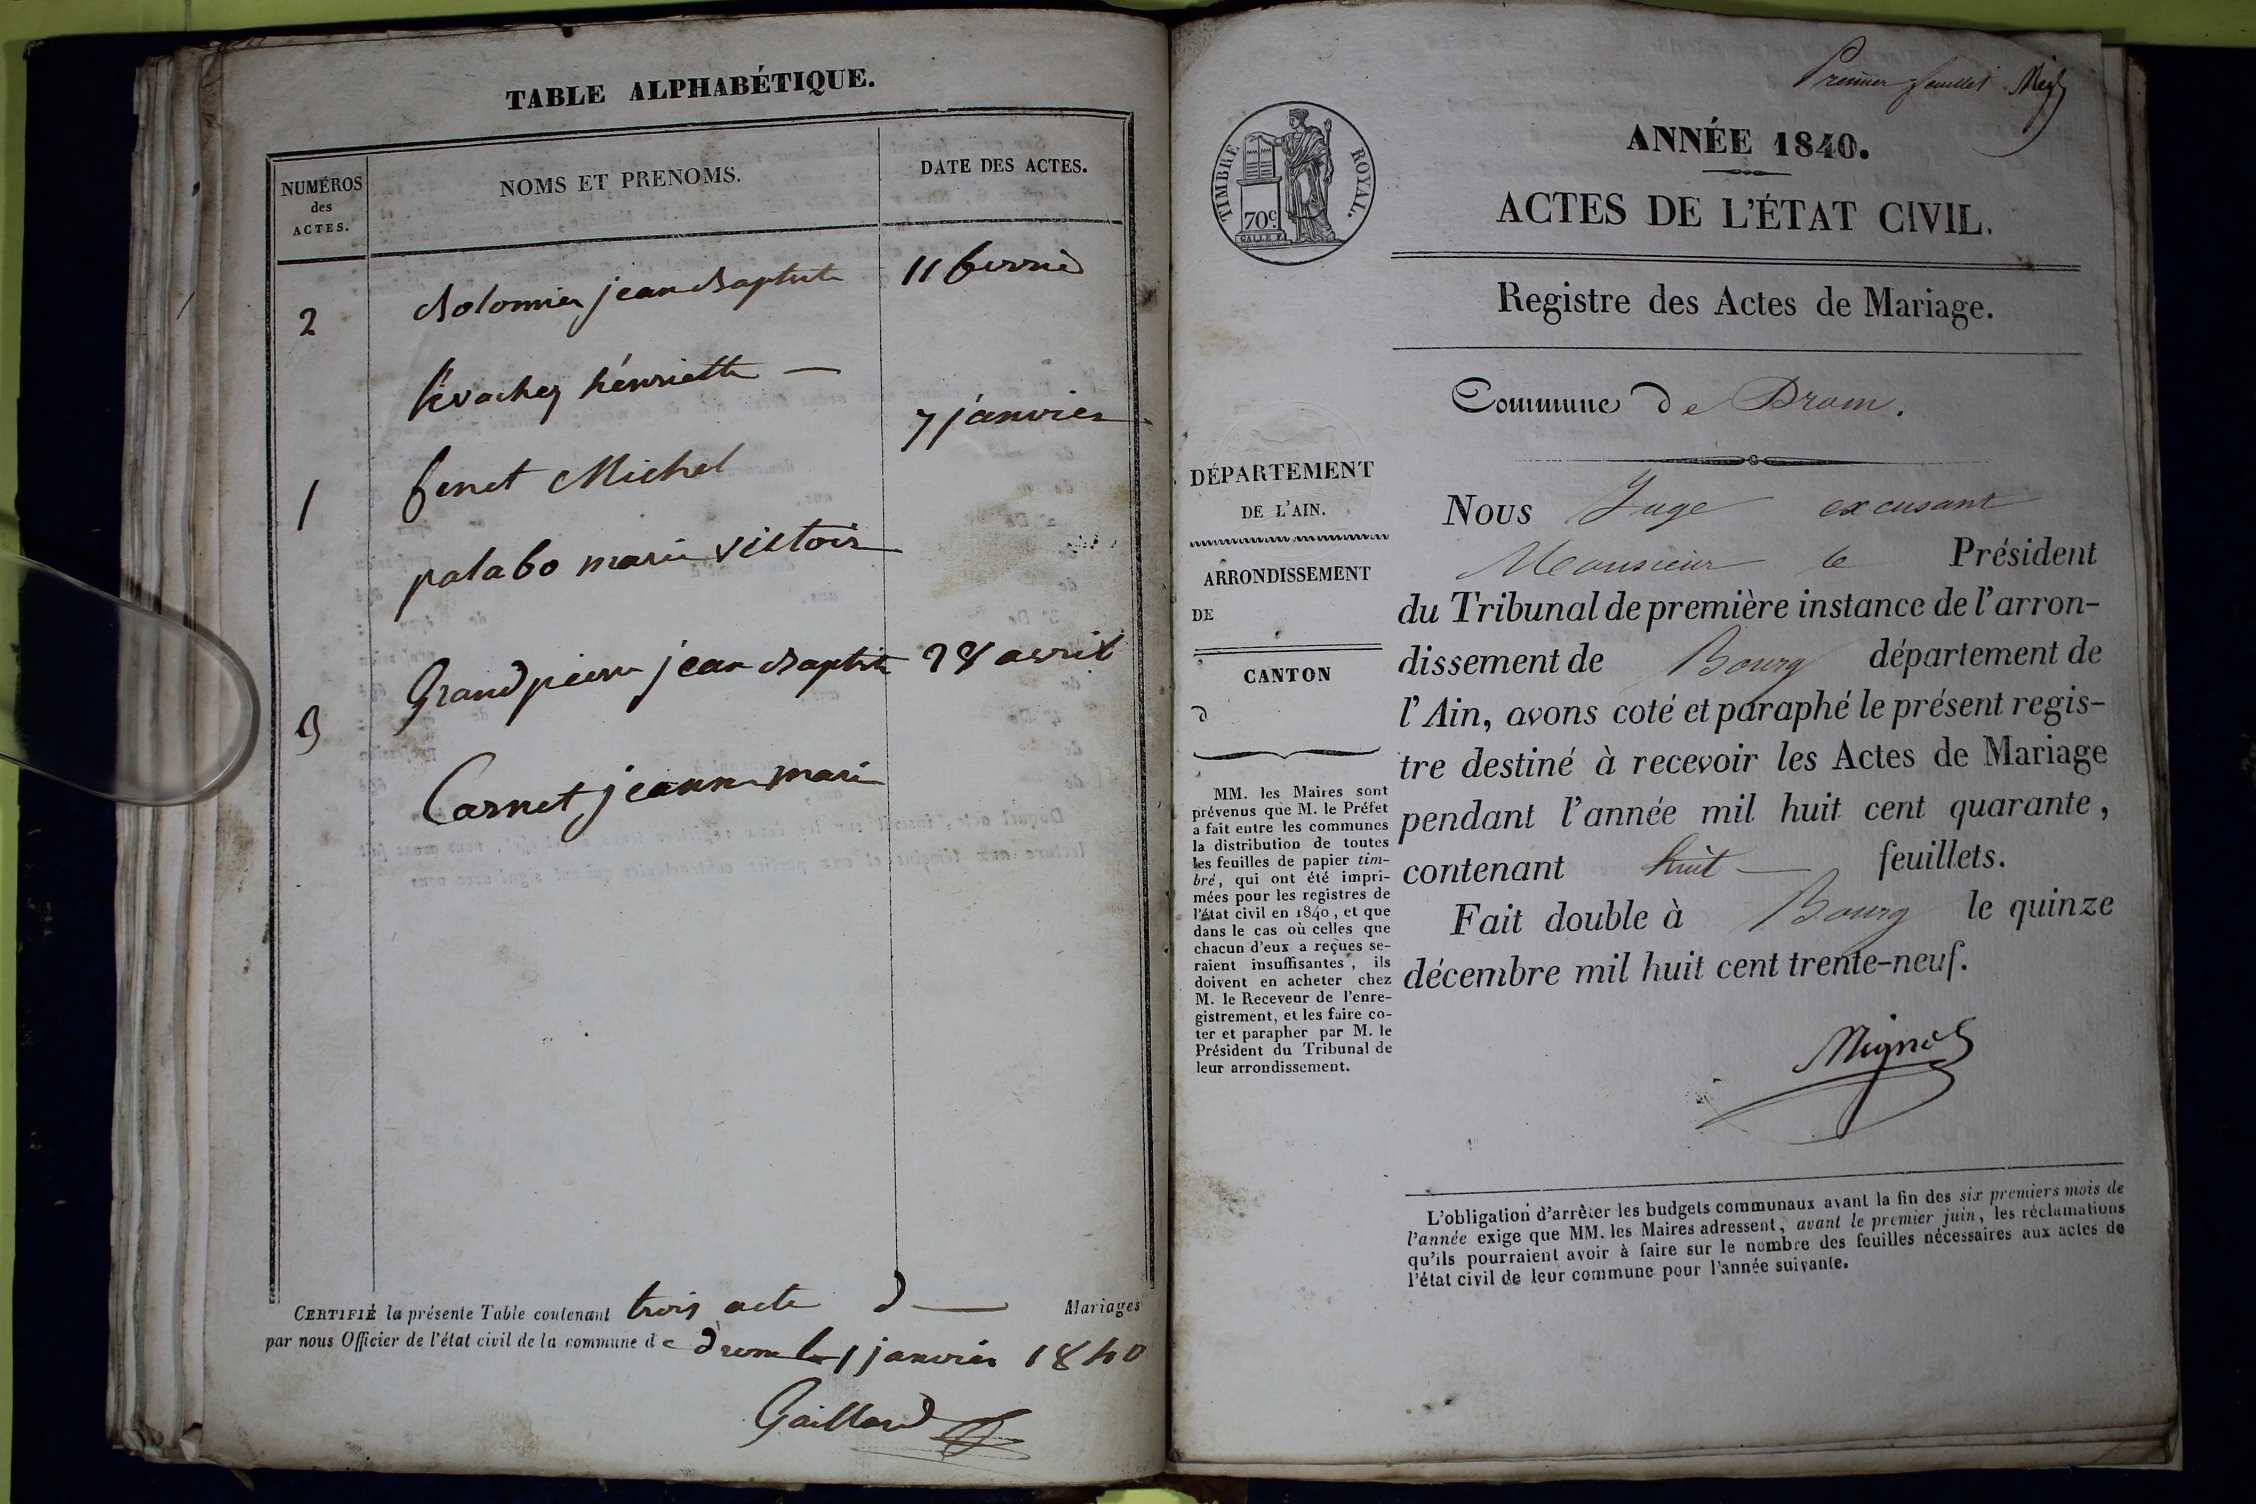 TABLE ALPHABÉTIQUE.
NUMÉROS
des
ACTES.
NOMS ET PRENOMS.
DATE DES ACTES.
2
jean Baptiste
11
henriette —
7 janvier
1
fenet Michel
palabo marie victoir
3
Grandpierre jean Baptiste
28 avril
Carnet jeanne marie
CERTIFIÉ la présente Table contenant trois acte d — Mariages
par nous Officier de l'état civil de la commune de drom le 1 janvier 1840
Gaillard
Premier feuillet
TIMBRE ROYAL.
70c.
ANNÉE 1840.
ACTES DE L'ÉTAT CIVIL.
Registre des Actes de Mariage.
Commune de Drom.
DÉPARTEMENT
DE L'AIN.
ARRONDISSEMENT
DE
CANTON
d
MM. les Maires sont
prévenus que M. le Préfet
a fait entre les communes
la distribution de toutes
les feuilles de papier tim-
bré, qui ont été impri-
mées pour les registres de
l'état civil en 1840, et que
dans le cas où celles que
chacun d'eux a reçues se-
raient insuffisantes, ils
doivent en acheter chez
M. le Receveur de l'enre-
gistrement, et les faire co-
ter et parapher par M. le
Président du Tribunal de
leur arrondissement.
Nous Juge excusant
Monsieur le Président
du Tribunal de première instance de l'arron-
dissement de Bourg département de
l'Ain, avons coté et paraphé le présent regis-
tre destiné à recevoir les Actes de Mariage
pendant l'année mil huit cent quarante,
contenant huit — feuillets.
Fait double à Bourg le quinze
décembre mil huit cent trente-neuf.
L'obligation d'arrêter les budgets communaux avant la fin des six premiers mois de
l'année exige que MM. les Maires adressent, avant le premier juin, les réclamations
qu'ils pourraient avoir à faire sur le nombre des feuilles nécessaires aux actes de
l'état civil de leur commune pour l'année suivante.